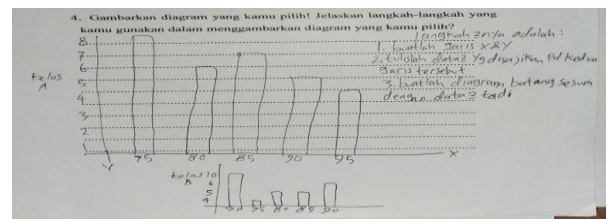 4. Gambarkan diagram yang kamu pilih! Jelaskan langkah-langkah yang
kamu gunakan dalam menggambarkan diagram yang kamu pilih?
Langkah2nya adalah :
1. buatlah garis X & Y
2. tulislah data2 yg disajikan Pd kedua
garis tersebut
3. buatlah diagram batang sesuai
dengan data2 tadi
kelas
A
8
7
6
5
4
3
2
1
Y 75 80 85 90 95 X
kelas
B
10
6
5
4
70 75 80 85 90